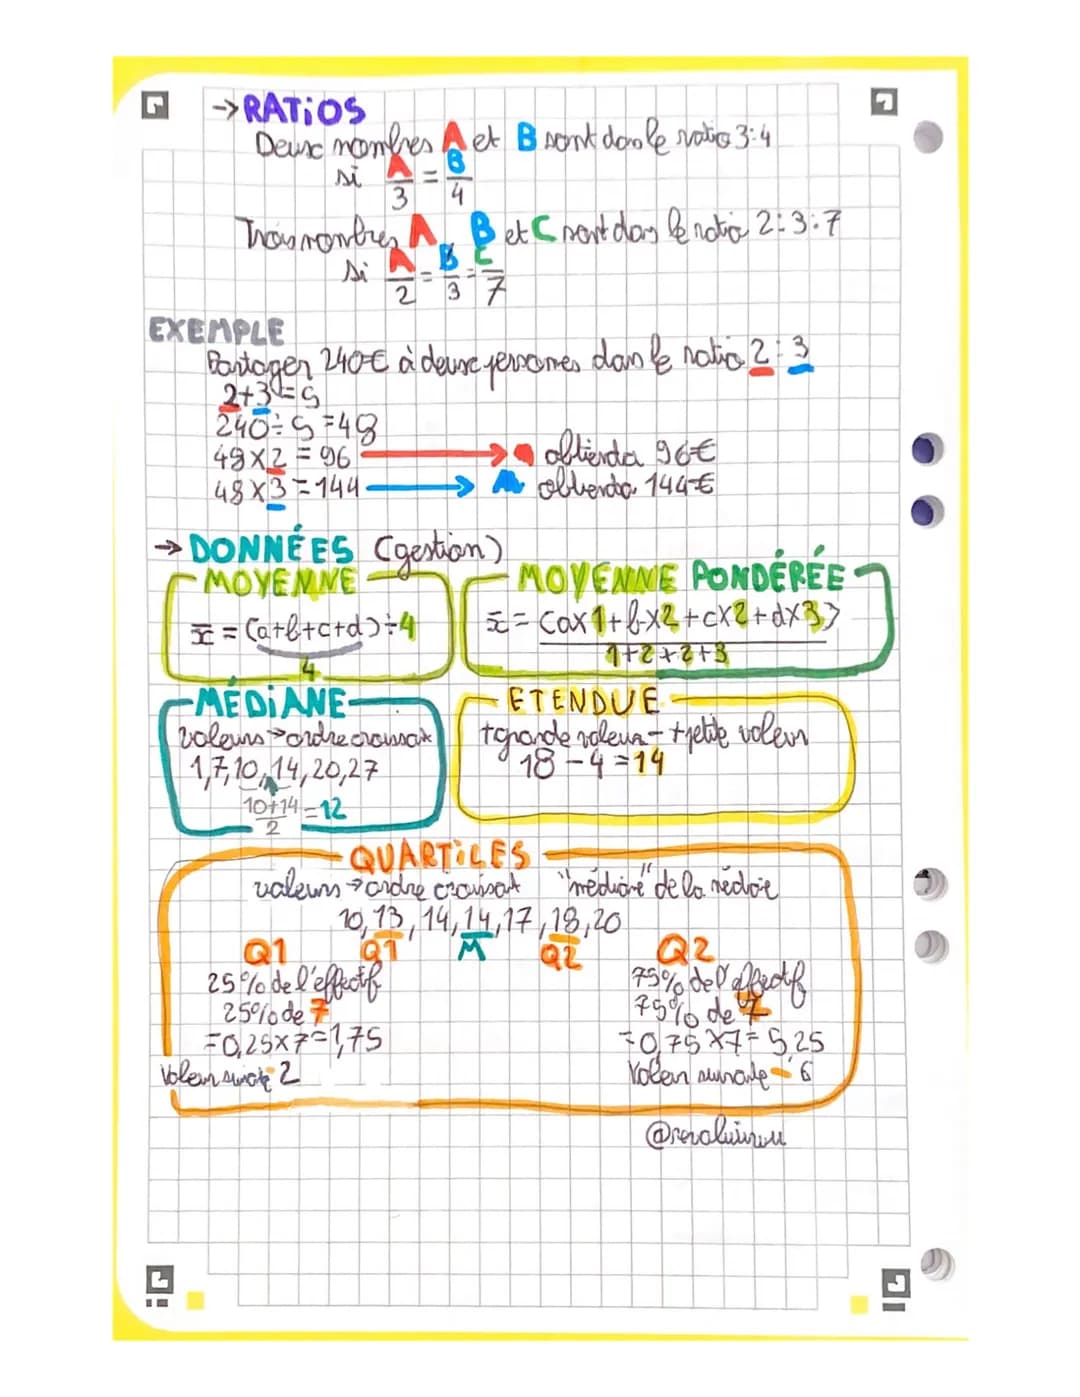 → RATIOS
Deux nombres A et B sont dans le ratio 3:4
si A/3 = B/4
Trois nombres A, B et C sont dans le ratio 2:3:7
si A/2 = B/3 = C/7
EXEMPLE
Partager 240€ à deux personnes dans le ratio 2:3
2+3=5
240÷5=48
48×2=96 → obtiendra 96€
48×3=144 → obtiendra 144€
→ DONNÉES (gestion)
MOYENNE
x̄ = (a+b+c+d)÷4
4
MOYENNE PONDÉRÉE
x̄ = (ax1+bx2+cx2+dx3)
1+2+2+3
MÉDIANE
valeurs → ordre croissant
1,7,10,14,20,27
10+14/2 = 12
ETENDUE
+grande valeur - +petite valeur
18-4=14
QUARTILES
valeurs → ordre croissant "médiane" de la médiane
10,13,14,14,17,18,20
Q1 M Q2
Q1
25% de l'effectif
25% de 7
=0,25×7=1,75
Valeur suivante 2
Q2
75% de l'effectif
75% de 7
=0,75×7=5,25
Valeur suivante - 6